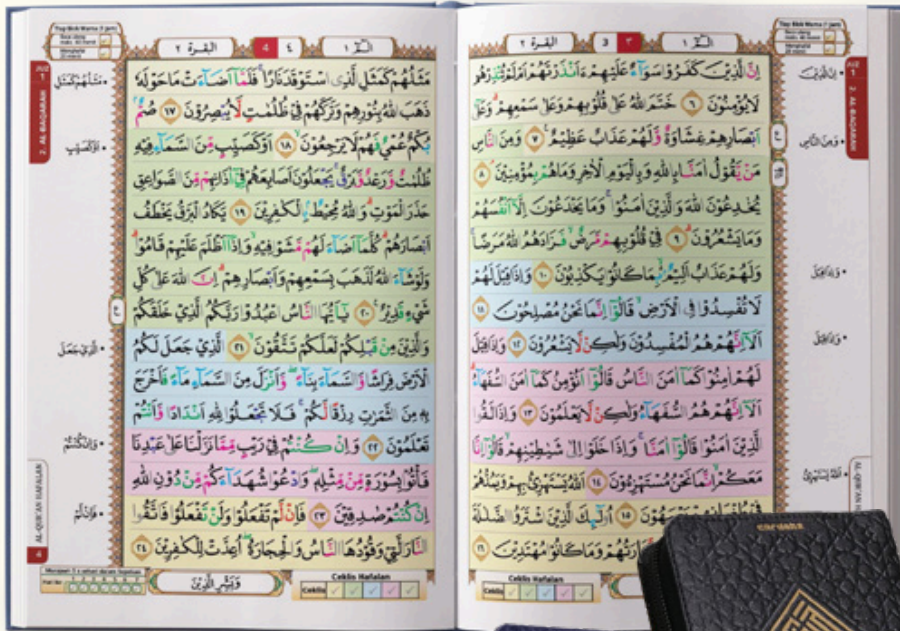 Tiap Blok Warna (1 jam)
البقرة ٢
3 ٣
الجزء ١
JUZ 1
2. AL-BAQARAH
اِنَّ الَّذِيْنَ كَفَرُوْا سَوَاۤءٌ عَلَيْهِمْ ءَاَنْذَرْتَهُمْ اَمْ لَمْ تُنْذِرْهُمْ
لَا يُؤْمِنُوْنَ ٦ خَتَمَ اللّٰهُ عَلٰى قُلُوْبِهِمْ وَعَلٰى سَمْعِهِمْ وَعَلٰٓى
اَبْصَارِهِمْ غِشَاوَةٌ وَّلَهُمْ عَذَابٌ عَظِيْمٌ ٧ وَمِنَ النَّاسِ
مَنْ يَّقُوْلُ اٰمَنَّا بِاللّٰهِ وَبِالْيَوْمِ الْاٰخِرِ وَمَا هُمْ بِمُؤْمِنِيْنَ ٨
يُخٰدِعُوْنَ اللّٰهَ وَالَّذِيْنَ اٰمَنُوْا وَمَا يَخْدَعُوْنَ اِلَّآ اَنْفُسَهُمْ
وَمَا يَشْعُرُوْنَ ٩ فِيْ قُلُوْبِهِمْ مَّرَضٌ فَزَادَهُمُ اللّٰهُ مَرَضًا
وَلَهُمْ عَذَابٌ اَلِيْمٌ بِمَا كَانُوْا يَكْذِبُوْنَ ١٠ وَاِذَا قِيْلَ لَهُمْ
لَا تُفْسِدُوْا فِى الْاَرْضِ قَالُوْٓا اِنَّمَا نَحْنُ مُصْلِحُوْنَ ١١
اَلَآ اِنَّهُمْ هُمُ الْمُفْسِدُوْنَ وَلٰكِنْ لَّا يَشْعُرُوْنَ ١٢ وَاِذَا قِيْلَ
لَهُمْ اٰمِنُوْا كَمَآ اٰمَنَ النَّاسُ قَالُوْٓا اَنُؤْمِنُ كَمَآ اٰمَنَ السُّفَهَاۤءُ
اَلَآ اِنَّهُمْ هُمُ السُّفَهَاۤءُ وَلٰكِنْ لَّا يَعْلَمُوْنَ ١٣ وَاِذَا لَقُوا
الَّذِيْنَ اٰمَنُوْا قَالُوْٓا اٰمَنَّا وَاِذَا خَلَوْا اِلٰى شَيٰطِيْنِهِمْ قَالُوْٓا اِنَّا
مَعَكُمْ اِنَّمَا نَحْنُ مُسْتَهْزِءُوْنَ ١٤ اَللّٰهُ يَسْتَهْزِئُ بِهِمْ وَيَمُدُّهُمْ
يَعْمَهُوْنَ ١٥ اُولٰۤىِٕكَ الَّذِيْنَ اشْتَرَوُا الضَّلٰلَةَ
وَمَا كَانُوْا مُهْتَدِيْنَ ١٦
اِنَّ الَّذِيْنَ
وَمِنَ النَّاسِ
وَاِذَا قِيْلَ
وَاِذَا قِيْلَ
اَللّٰهُ يَسْتَهْزِئُ
AL-QUR'AN HAFALAN
Ceklis Hafalan
Ceklis
Tiap Blok Warna (1 jam)
البقرة ٢
4 ٤
الجزء ١
JUZ 1
2. AL-BAQARAH
مَثَلُهُمْ كَمَثَلِ الَّذِى اسْتَوْقَدَ نَارًا فَلَمَّآ اَضَاۤءَتْ مَا حَوْلَهٗ
ذَهَبَ اللّٰهُ بِنُوْرِهِمْ وَتَرَكَهُمْ فِيْ ظُلُمٰتٍ لَّا يُبْصِرُوْنَ ١٧ صُمٌّ
بُكْمٌ عُمْيٌ فَهُمْ لَا يَرْجِعُوْنَ ١٨ اَوْ كَصَيِّبٍ مِّنَ السَّمَاۤءِ فِيْهِ
ظُلُمٰتٌ وَّرَعْدٌ وَّبَرْقٌ يَجْعَلُوْنَ اَصَابِعَهُمْ فِيْٓ اٰذَانِهِمْ مِّنَ الصَّوَاعِقِ
حَذَرَ الْمَوْتِ وَاللّٰهُ مُحِيْطٌ بِالْكٰفِرِيْنَ ١٩ يَكَادُ الْبَرْقُ يَخْطَفُ
اَبْصَارَهُمْ كُلَّمَآ اَضَاۤءَ لَهُمْ مَّشَوْا فِيْهِ وَاِذَآ اَظْلَمَ عَلَيْهِمْ قَامُوْا
وَلَوْ شَاۤءَ اللّٰهُ لَذَهَبَ بِسَمْعِهِمْ وَاَبْصَارِهِمْ اِنَّ اللّٰهَ عَلٰى كُلِّ
شَيْءٍ قَدِيْرٌ ٢٠ يٰٓاَيُّهَا النَّاسُ اعْبُدُوْا رَبَّكُمُ الَّذِيْ خَلَقَكُمْ
وَالَّذِيْنَ مِنْ قَبْلِكُمْ لَعَلَّكُمْ تَتَّقُوْنَ ٢١ الَّذِيْ جَعَلَ لَكُمُ
الْاَرْضَ فِرَاشًا وَّالسَّمَاۤءَ بِنَاۤءً وَّاَنْزَلَ مِنَ السَّمَاۤءِ مَاۤءً فَاَخْرَجَ
بِهٖ مِنَ الثَّمَرٰتِ رِزْقًا لَّكُمْ فَلَا تَجْعَلُوْا لِلّٰهِ اَنْدَادًا وَّاَنْتُمْ
تَعْلَمُوْنَ ٢٢ وَاِنْ كُنْتُمْ فِيْ رَيْبٍ مِّمَّا نَزَّلْنَا عَلٰى عَبْدِنَا
فَأْتُوْا بِسُوْرَةٍ مِّنْ مِّثْلِهٖ وَادْعُوْا شُهَدَاۤءَكُمْ مِّنْ دُوْنِ اللّٰهِ
اِنْ كُنْتُمْ صٰدِقِيْنَ ٢٣ فَاِنْ لَّمْ تَفْعَلُوْا وَلَنْ تَفْعَلُوْا فَاتَّقُوا
النَّارَ الَّتِيْ وَقُوْدُهَا النَّاسُ وَالْحِجَارَةُ اُعِدَّتْ لِلْكٰفِرِيْنَ ٢٤
مَثَلُهُمْ كَمَثَلِ
اَوْ كَصَيِّبٍ
الَّذِيْ جَعَلَ
وَاِنْ كُنْتُمْ
فَاِنْ لَّمْ
AL-QUR'AN HAFALAN
4
وَبَشِّرِ الَّذِيْنَ
Ceklis Hafalan
Ceklis
CORDOBA